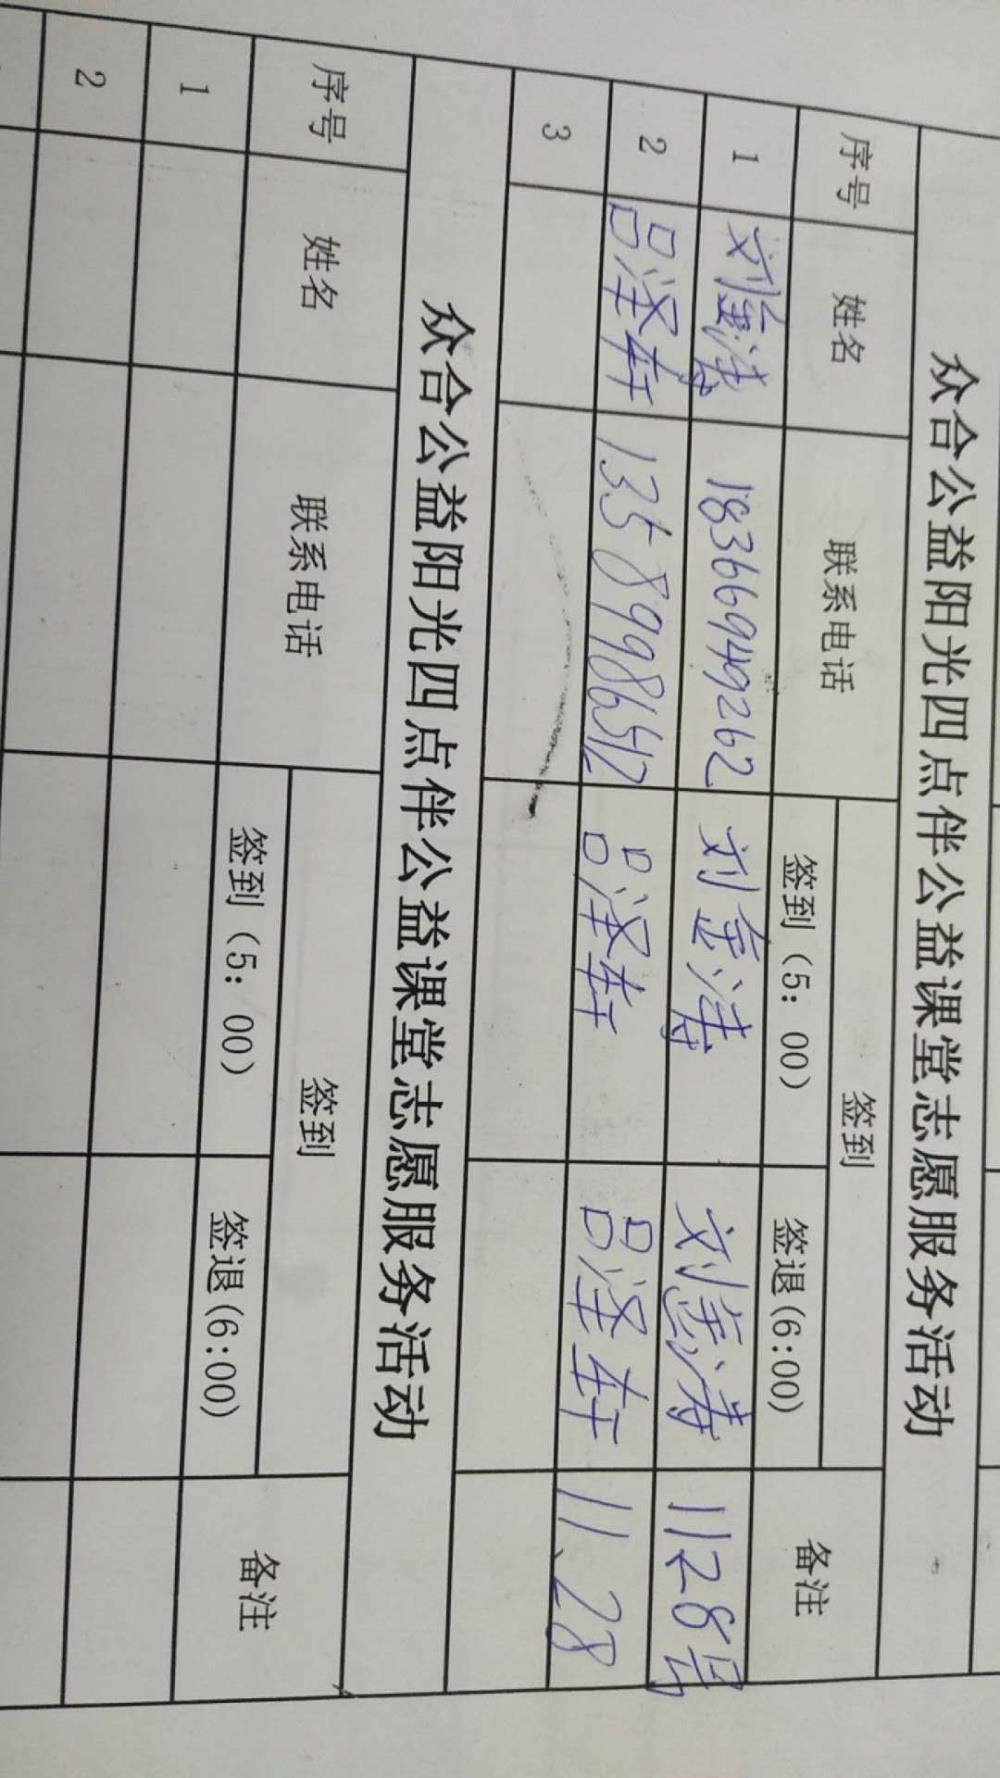 众合公益阳光四点伴公益课堂志愿服务活动
序号 姓名 联系电话 签到 备注
签到（5：00） 签退(6:00)
1 刘金涛 18366949262 刘金涛 刘金涛 1128号
2 吕泽轩 13589986512 吕泽轩 吕泽轩 11、28
3
众合公益阳光四点伴公益课堂志愿服务活动
序号 姓名 联系电话 签到 备注
签到（5：00） 签退(6:00)
1
2